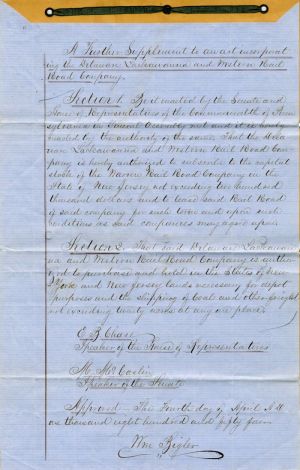 A Further Supplement to an act incorporat
ing the Delaware Lackawanna and Western Rail
Road Company.
Section 1. Be it enacted by the Senate and
House of Representatives of the Commonwealth of Penn
sylvania in General Assembly met and it is hereby
enacted by the authority of the same, That the Dela
ware Lackawanna and Western Rail Road Com-
pany is hereby authorized to subscribe to the capital
stock of the Warren Rail Road Company in the
State of New Jersey not exceeding two hundred
thousand dollars and to lease said Rail Road
of said company for such time and upon such
conditions as said companies may agree upon
Section 2. That said Delaware Lackawan
na and Western Rail Road Company is author
ized to purchase and hold in the States of New
York and New Jersey lands necessary for depot
purposes and the shipping of coal and other freight
not exceeding twenty acres at any one place.
E. B. Chase
Speaker of the House of Representatives
M. McCaslin
Speaker of the Senate
Approved - The Fourth day of April A.D.
one thousand eight hundred and fifty four
Wm Bigler